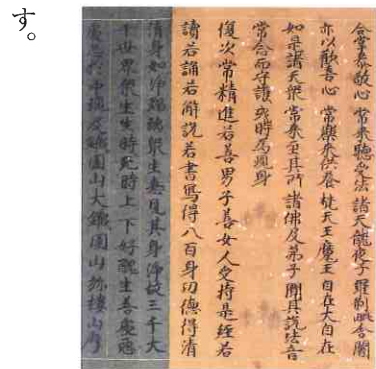 合掌恭敬心 常來聽受法 諸天龍夜叉 羅刹毗舍闍
亦以歡喜心 常樂來供養 梵天王魔王 自在大自在
如是諸天衆 常來至其所 諸佛及弟子 聞其說法音
常念而守護 或時為現身
復次常精進若善男子善女人受持是經若
讀若誦若解說若書寫得八百身功德得清
淨身如淨瑠璃衆生憙見其身淨故三千大
千世界衆生生時死時上下好醜生善處惡
處悉於中現及鐵圍山大鐵圍山弥樓山摩
す。